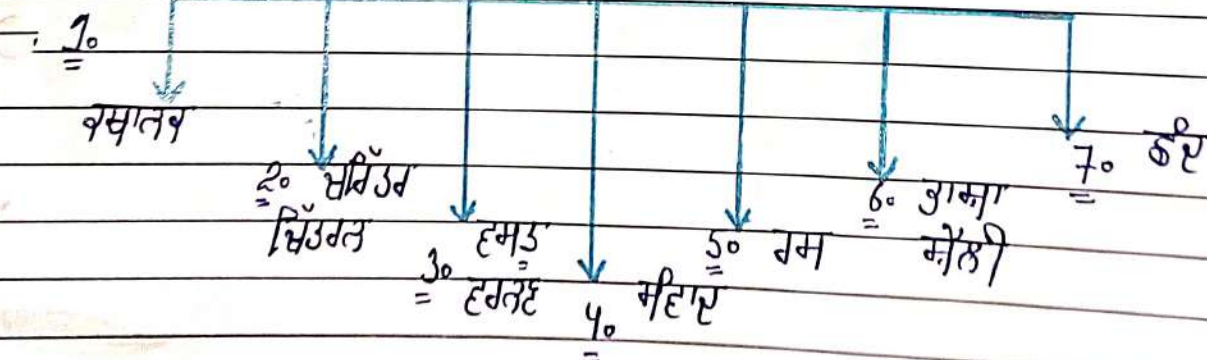 1. ਕਥਾਨਕ
2. ਚਰਿੱਤਰ
ਚਿੱਤਰਨ
3. ਵਸਤੂ
ਵਰਣਨ
4. ਸੰਵਾਦ
5. ਰਸ
6. ਭਾਸ਼ਾ
ਸ਼ੈਲੀ
7. ਛੰਦ